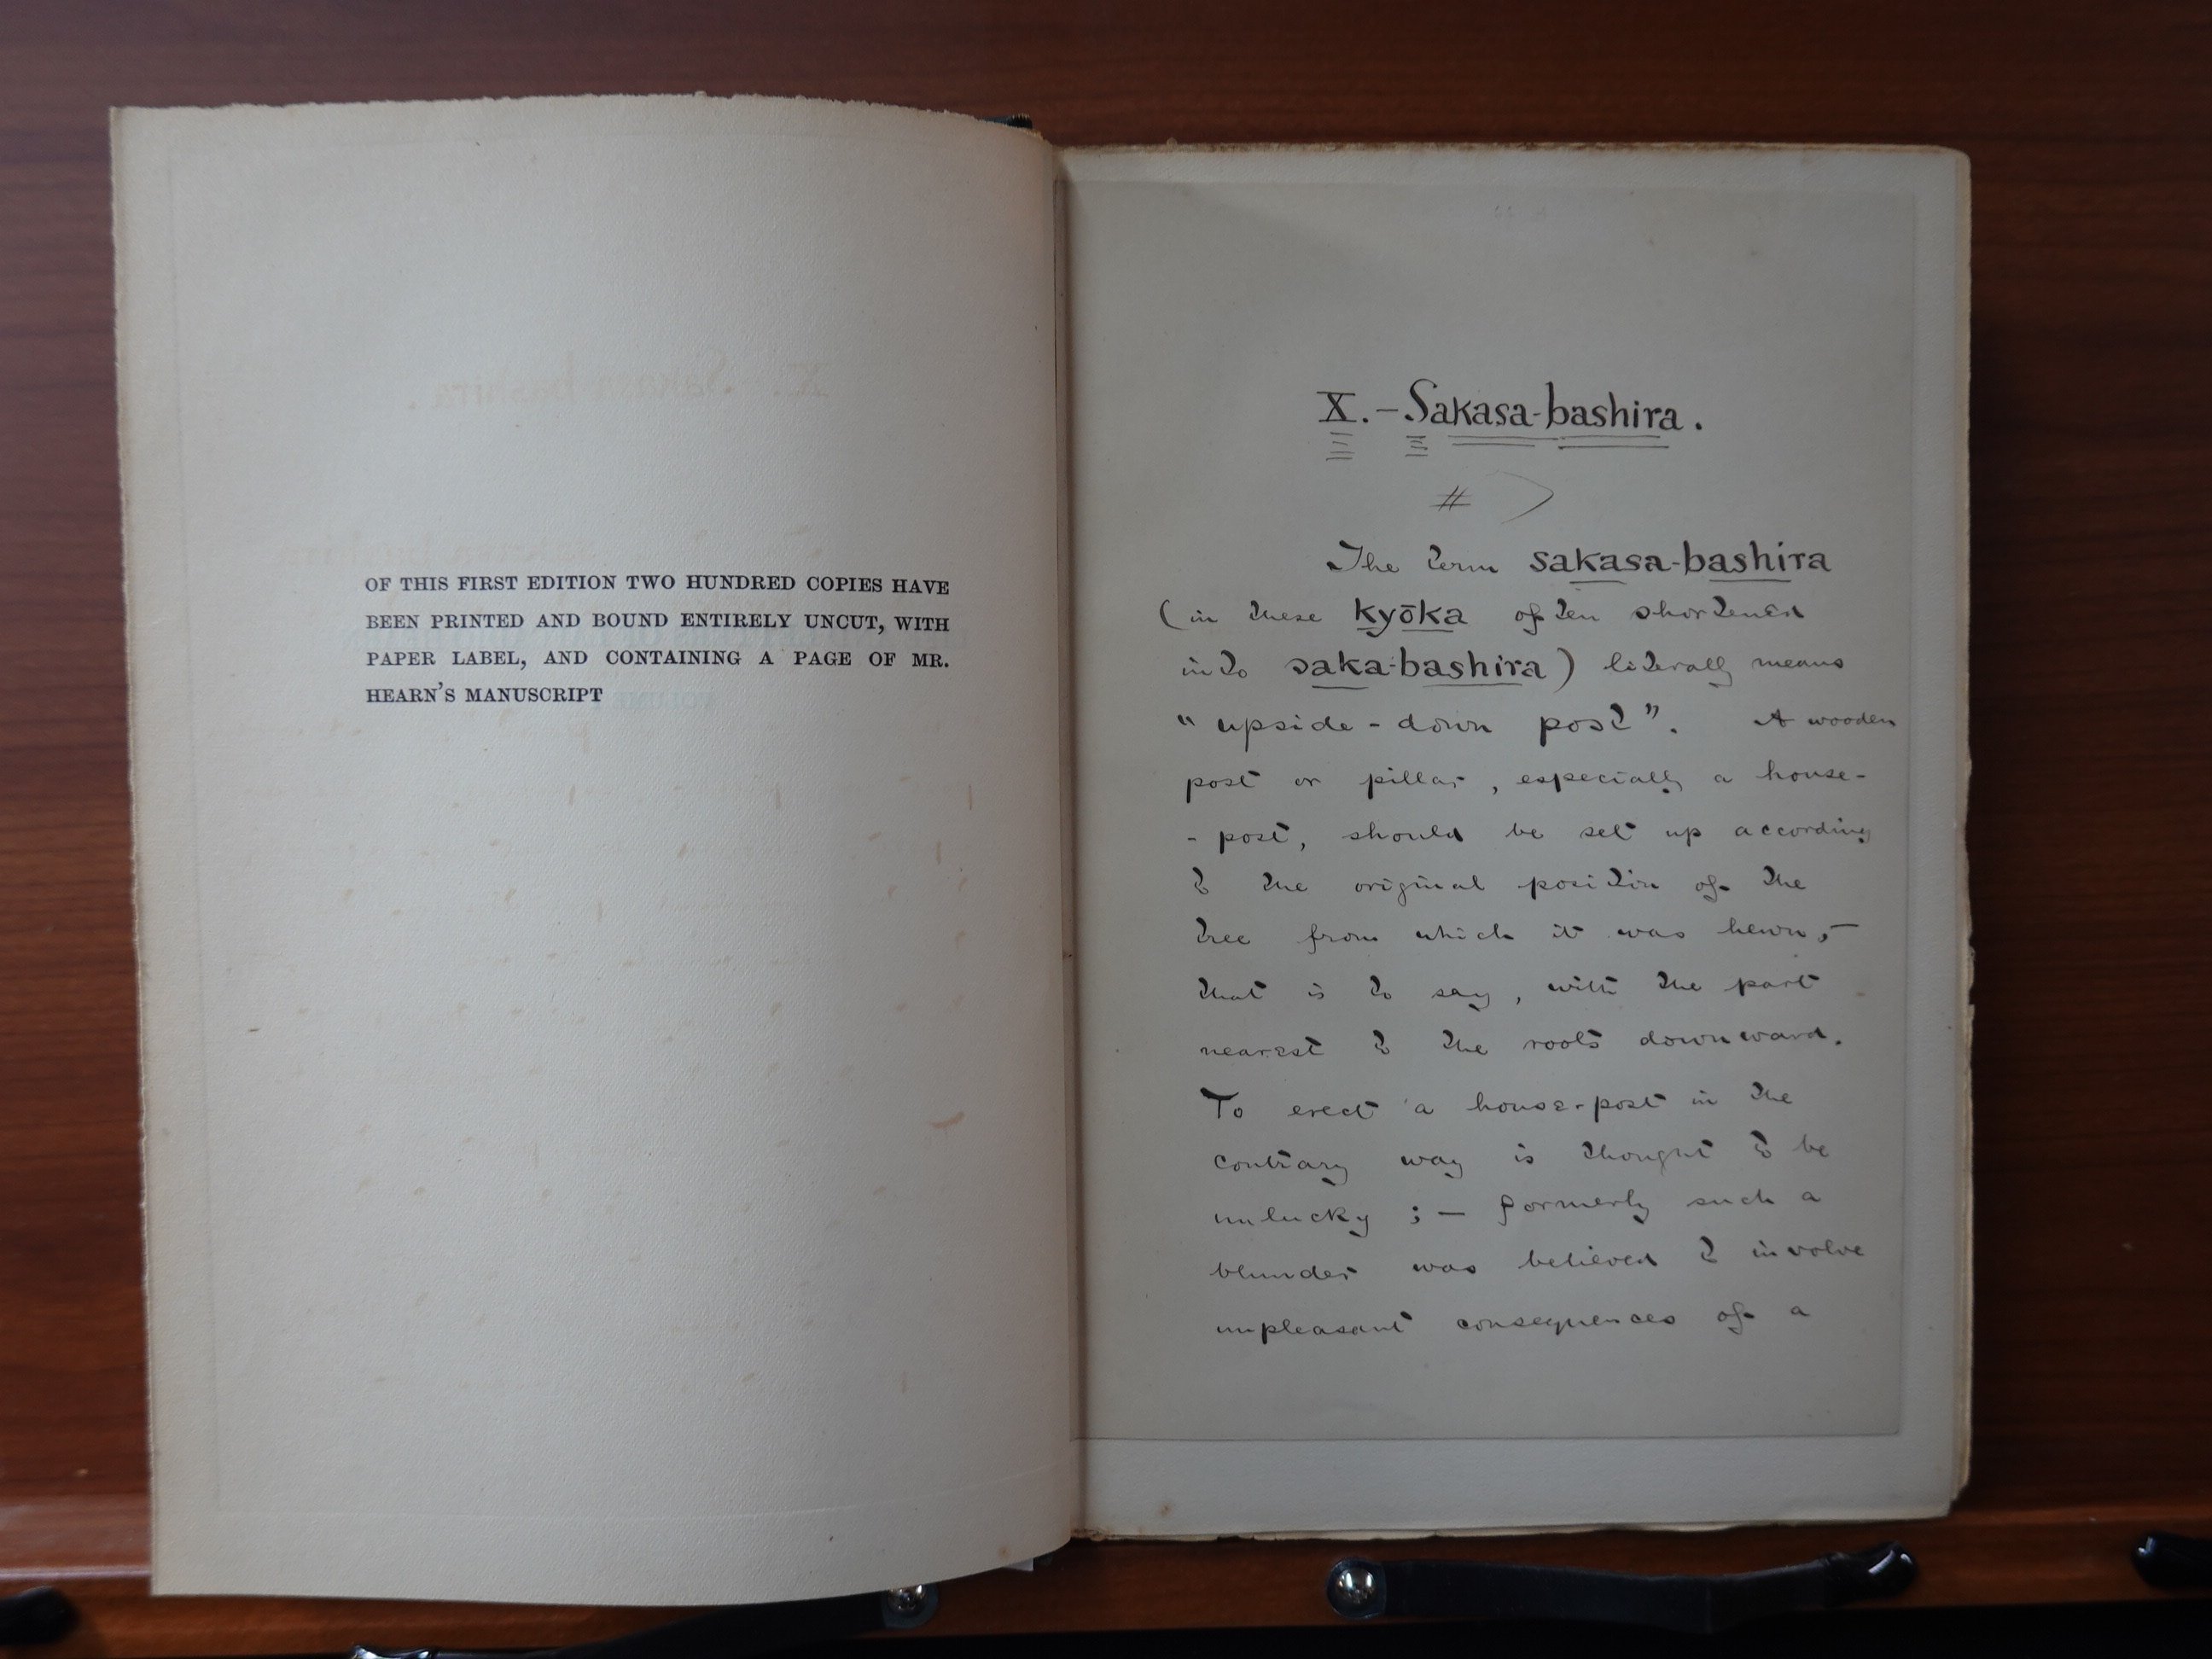 OF THIS FIRST EDITION TWO HUNDRED COPIES HAVE
BEEN PRINTED AND BOUND ENTIRELY UNCUT, WITH
PAPER LABEL, AND CONTAINING A PAGE OF MR.
HEARN'S MANUSCRIPT
X. – Sakasa-bashira.
#
The term sakasa-bashira
(in these kyōka often shortened
into saka-bashira) literally means
"upside-down post". A wooden
post or pillar, especially a house-
-post, should be set up according
to the original position of the
tree from which it was hewn,—
that is to say, with the part
nearest to the roots downward.
To erect a house-post in the
contrary way is thought to be
unlucky ; — formerly such a
blunder was believed to involve
unpleasant consequences of a